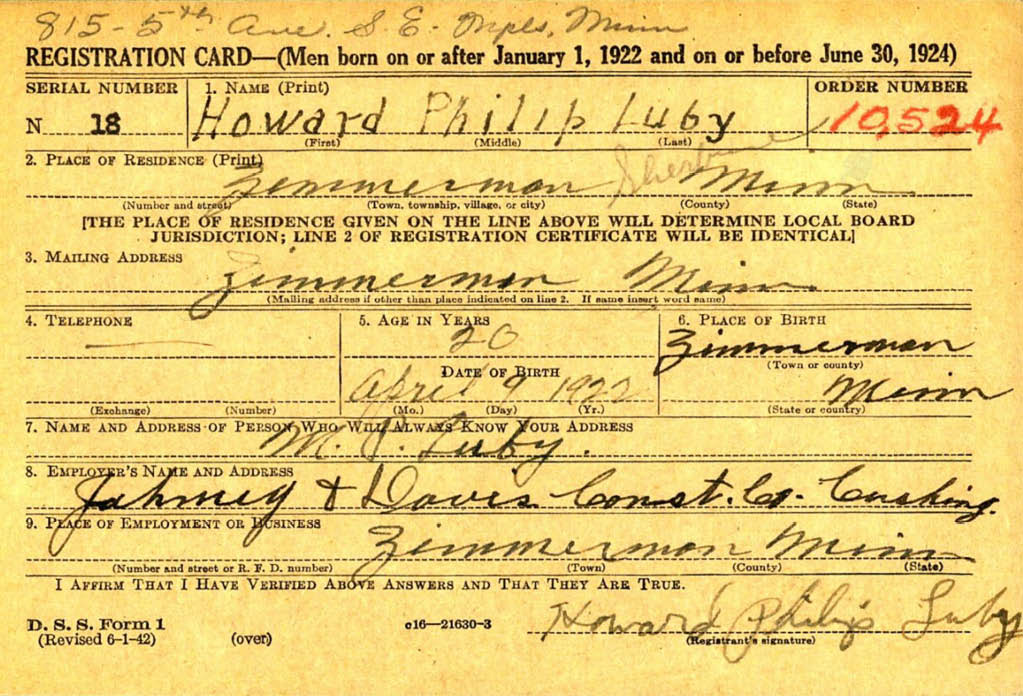 815 - 5th Ave. S. E. Mpls, Minn
REGISTRATION CARD—(Men born on or after January 1, 1922 and on or before June 30, 1924)
SERIAL NUMBER 1. NAME (Print) ORDER NUMBER
N 18 Howard Philip Luby 10,524
(First) (Middle) (Last)
2. PLACE OF RESIDENCE (Print)
Zimmerman Sherburne Minn
(Number and street) (Town, township, village, or city) (County) (State)
[THE PLACE OF RESIDENCE GIVEN ON THE LINE ABOVE WILL DETERMINE LOCAL BOARD
JURISDICTION; LINE 2 OF REGISTRATION CERTIFICATE WILL BE IDENTICAL]
3. MAILING ADDRESS
Zimmerman Minn.
(Mailing address if other than place indicated on line 2. If same insert word same)
4. TELEPHONE 5. AGE IN YEARS 6. PLACE OF BIRTH
20 Zimmerman
(Town or county)
DATE OF BIRTH
April 9 1922 Minn
(Exchange) (Number) (Mo.) (Day) (Yr.) (State or country)
7. NAME AND ADDRESS OF PERSON WHO WILL ALWAYS KNOW YOUR ADDRESS
M. P. Luby.
8. EMPLOYER'S NAME AND ADDRESS
& Davis Const. Co. Cushing.
9. PLACE OF EMPLOYMENT OR BUSINESS
Zimmerman Minn
(Number and street or R. F. D. number) (Town) (County) (State)
I AFFIRM THAT I HAVE VERIFIED ABOVE ANSWERS AND THAT THEY ARE TRUE.
D. S. S. Form 1
(Revised 6-1-42) (over) c16—21630-3 Howard Philip Luby
(Registrant's signature)